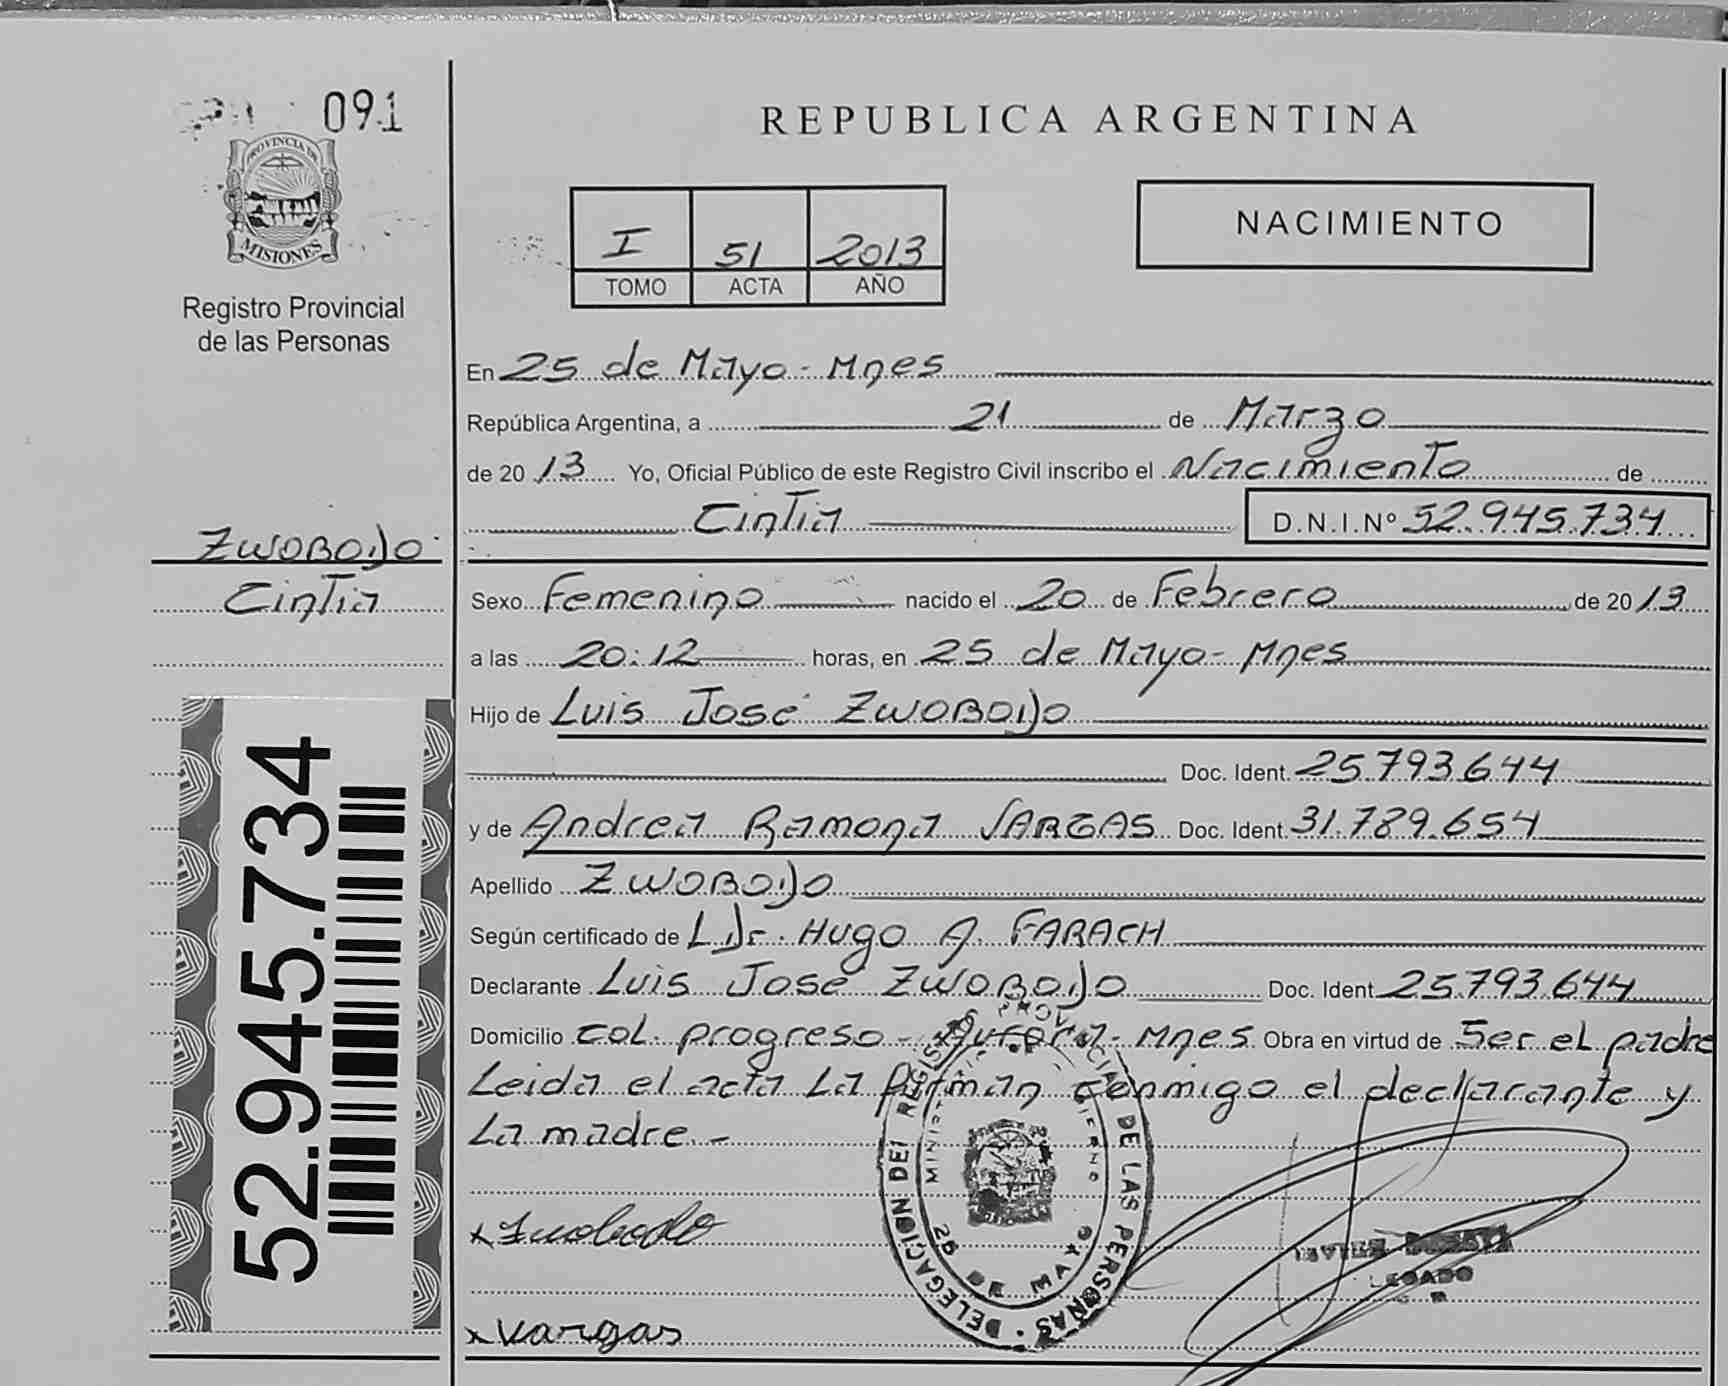 091
PROVINCIA DE
MISIONES
Registro Provincial
de las Personas
REPUBLICA ARGENTINA
I 51 2013
TOMO ACTA AÑO
NACIMIENTO
En 25 de Mayo - Mnes
República Argentina, a 21 de Marzo
de 20 13 Yo, Oficial Público de este Registro Civil inscribo el Nacimiento de
Cintia D.N.I.Nº 52.945.734
ZWOBODO
Cintia
Sexo Femenino nacido el 20 de Febrero de 20 13
a las 20:12 horas, en 25 de Mayo - Mnes
Hijo de Luis José ZWOBODO
Doc. Ident. 25.793.644
y de Andrea Ramona VARGAS Doc. Ident. 31.789.654
Apellido ZWOBODO
Según certificado de Dr. Hugo A. FARACH
Declarante Luis José ZWOBODO Doc. Ident 25.793.644
Domicilio Col. progreso - Aurora - Mnes Obra en virtud de Ser el padre
Leida el acta La firman conmigo el declarante y
La madre.-
52.945.734
x Zwobodo
x Vargas
DELEGACION DEL REGISTRO PROVINCIAL DE LAS PERSONAS
25 DE MAYO